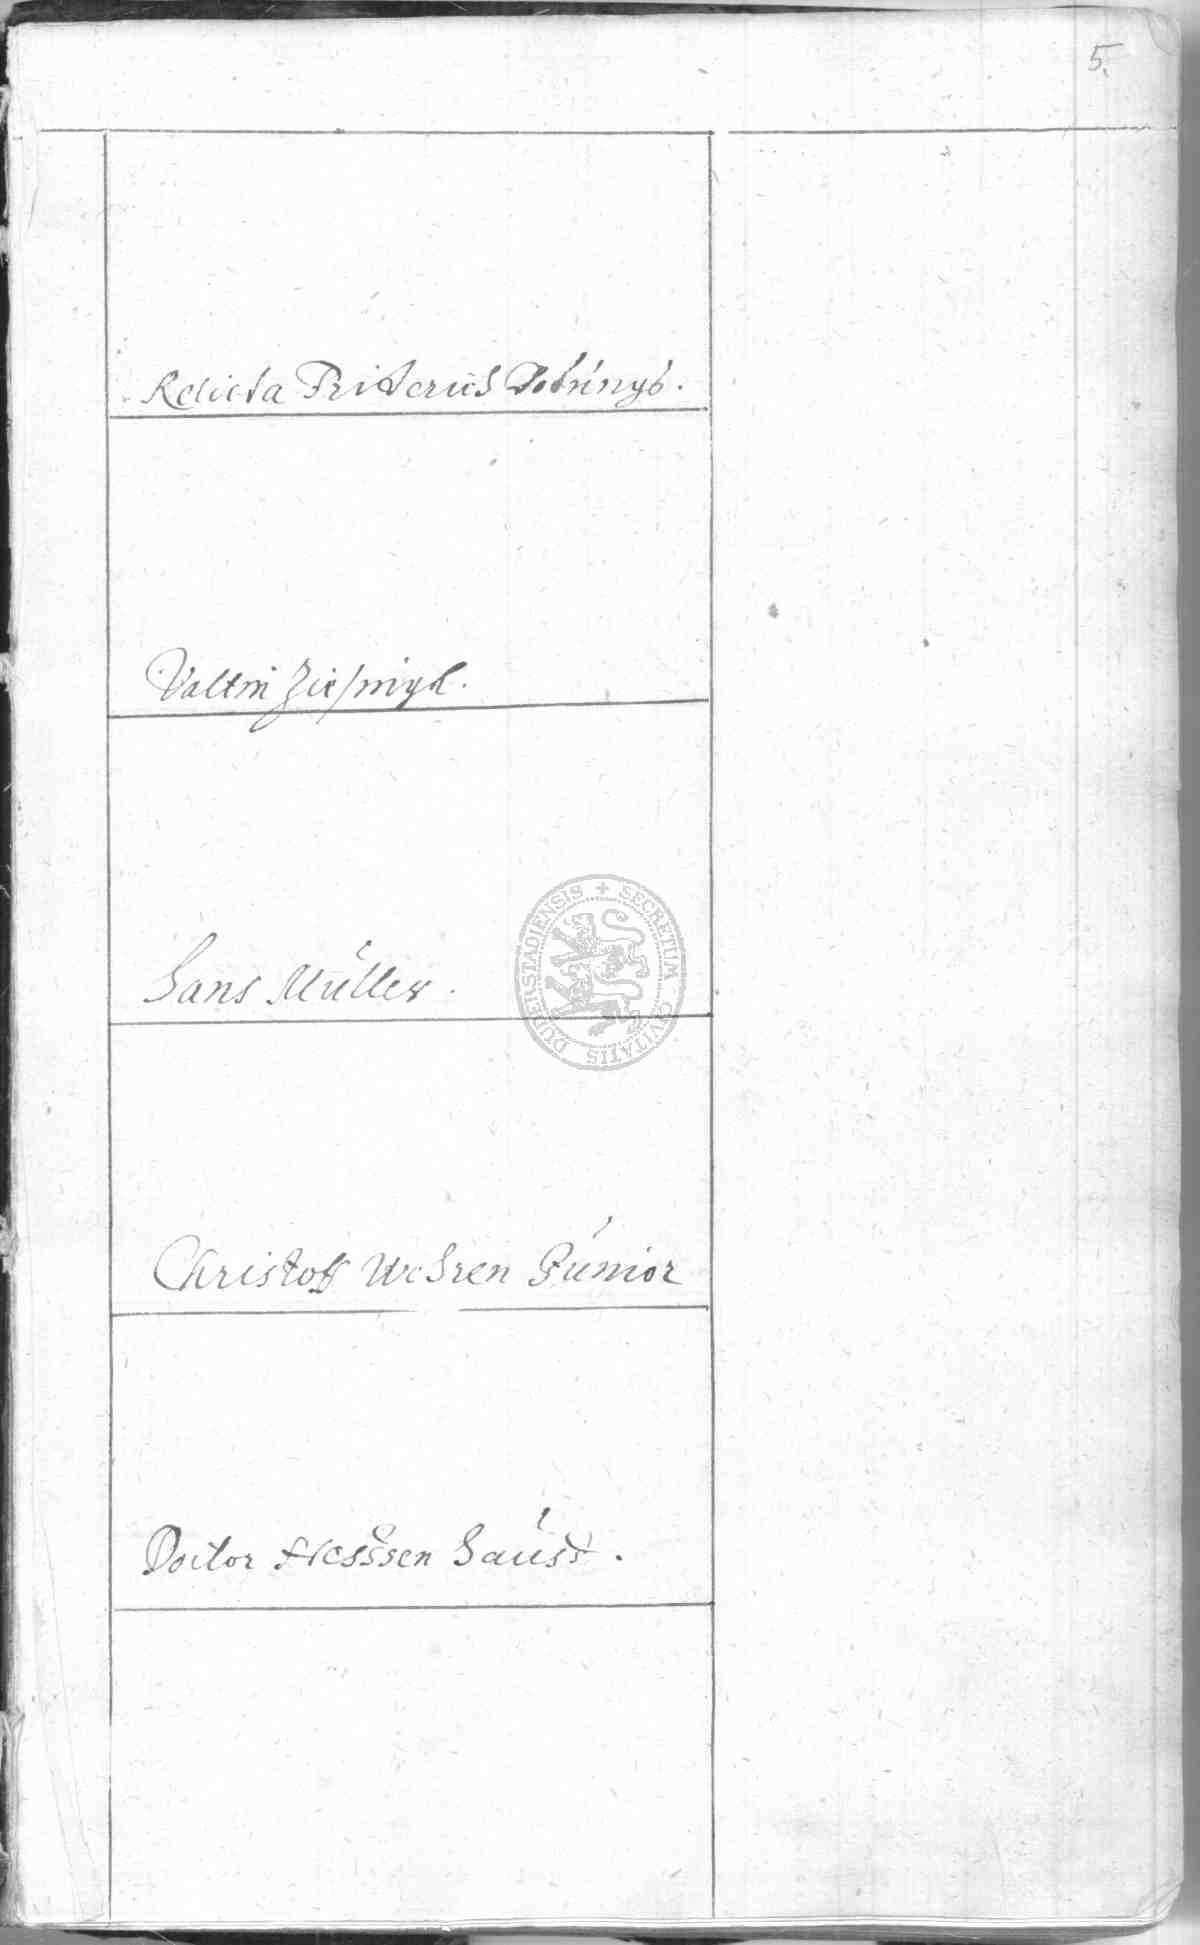 5.
Relicta Friderich
Valtin
Hans Müller.
Christoff Wehren Junior
Doctor Hesssen Hauss.
DUDERSTADIENSIS + SECRETUM CIVITATIS